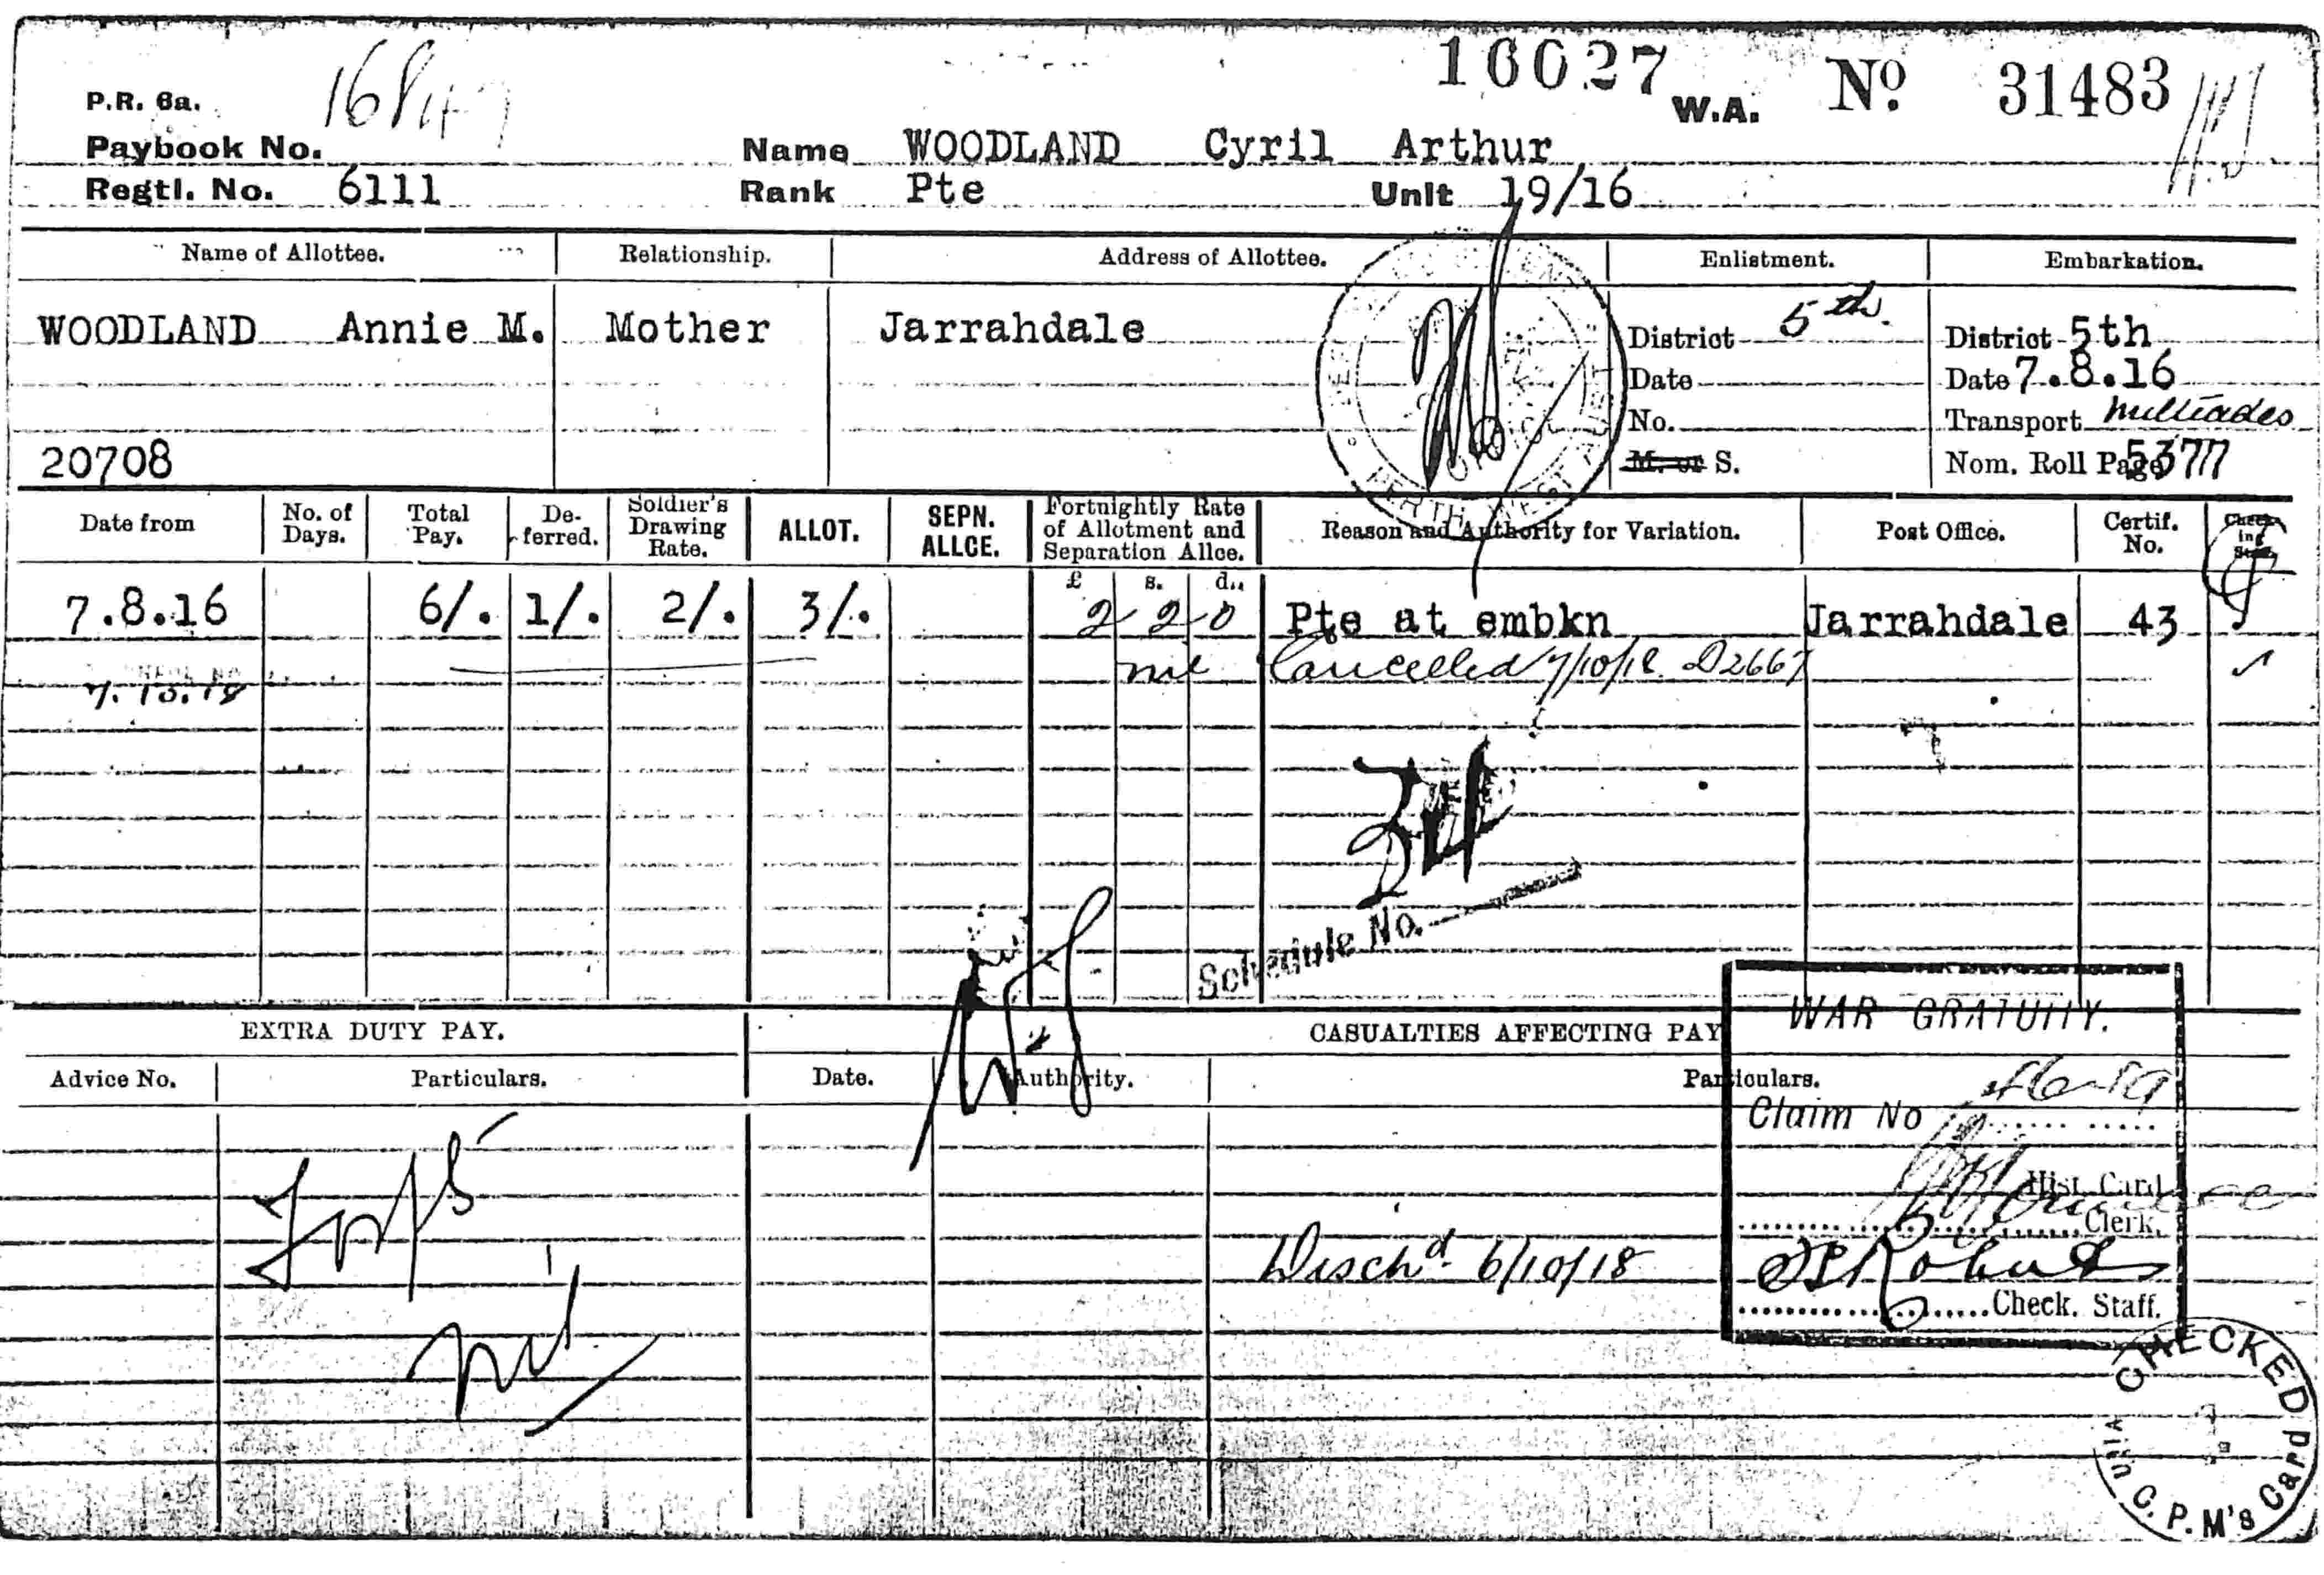 10027 W.A. Nº 31483
P.R. 6a.
Paybook No. Name WOODLAND Cyril Arthur
Regtl. No. 6111 Rank Pte Unit 19/16
Name of Allottee. Relationship. Address of Allottee. Enlistment. Embarkation.
WOODLAND Annie M. Mother Jarrahdale District 5th. District 5th
Date Date 7.8.16
No. Transport Miltiades
20708 M. or S. Nom. Roll Page 5377
PERTH WEST AUST
Date from No. of Days. Total Pay. De-ferred. Soldier's Drawing Rate. ALLOT. SEPN. ALLCE. Fortnightly Rate of Allotment and Separation Allce. Reason and Authority for Variation. Post Office. Certif. No. Check-ing Staff
£ s. d.
7.8.16 6/. 1/. 2/. 3/. 2 2 0 Pte at embkn Jarrahdale 43
7.10.18 nil Cancelled 7/10/18 D2667
Schedule No.
EXTRA DUTY PAY. CASUALTIES AFFECTING PAY
WAR GRATUITY.
Advice No. Particulars. Date. Authority. Particulars.
Claim No
Hist. Card
Clerk.
nil
Dischd. 6/10/18
Roberts
Check. Staff.
CHECKED
C.P.M's Card